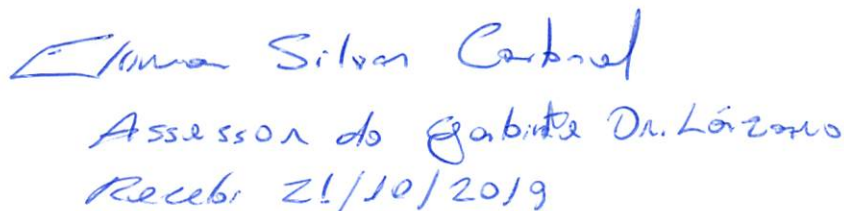 Silvan
Assessor do gabinete Dr. Lázaro
Recebi 21/10/2019